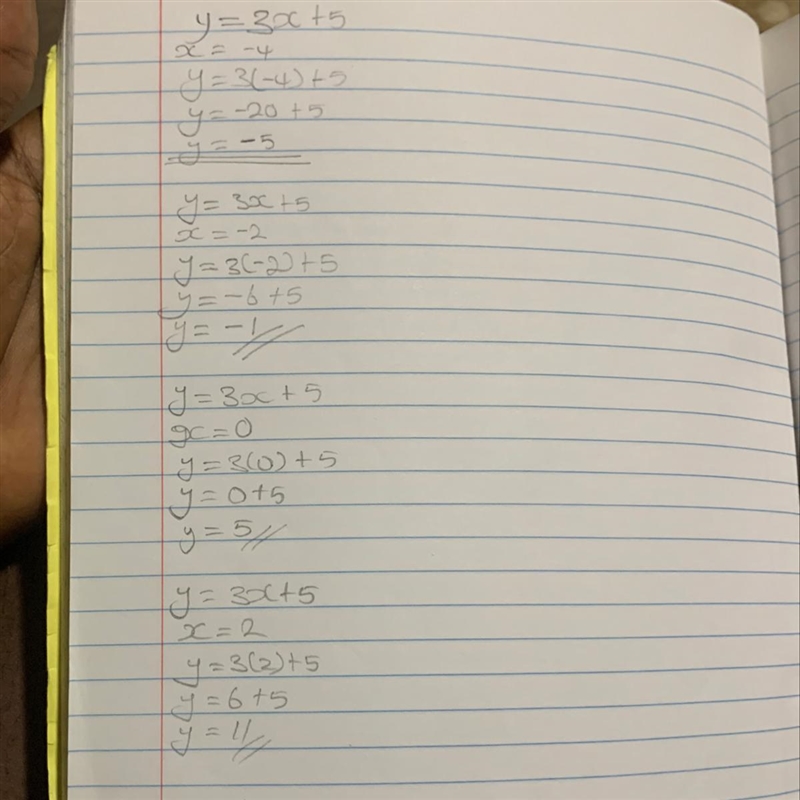 y = 3x + 5
x = -4
y = 3(-4) + 5
y = -20 + 5
y = -5
y = 3x + 5
x = -2
y = 3(-2) + 5
y = -6 + 5
y = -1
y = 3x + 5
x = 0
y = 3(0) + 5
y = 0 + 5
y = 5
y = 3x + 5
x = 2
y = 3(2) + 5
y = 6 + 5
y = 11